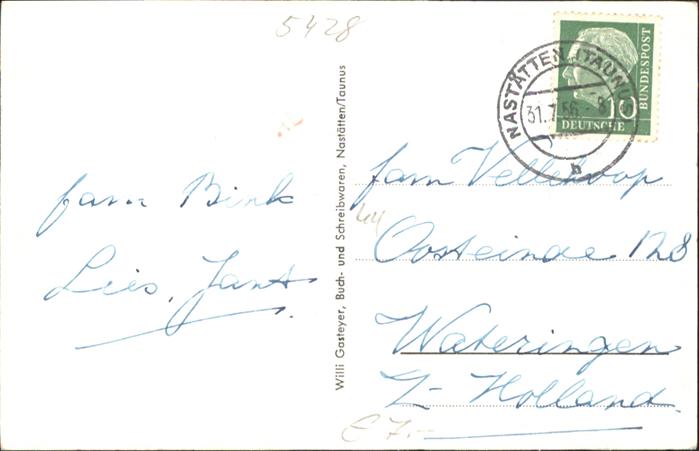 5428
NASTÄTTEN (TAUNUS)
31.7.56 - 8
b
10
DEUTSCHE
BUNDESPOST
fam Bink
Lies, Jant
Willi Gasteyer, Buch- und Schreibwaren, Nastätten/Taunus
fam Vellekoop
Oosteinde 128
Wateringen
Z-Holland
€ 7.-